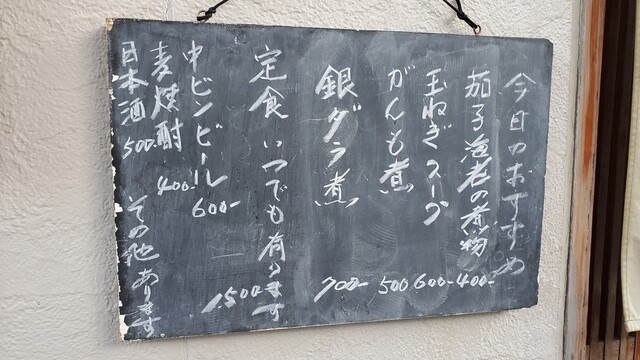 今日のおすすめ
茄子海老の煮物 400-
玉ねぎスープ 600-
がんも煮 500
銀ダラ煮 700-
定食 いつでも有ります 1,500-
中ビンビール 600-
麦焼酎 400-
日本酒 500- その他あります